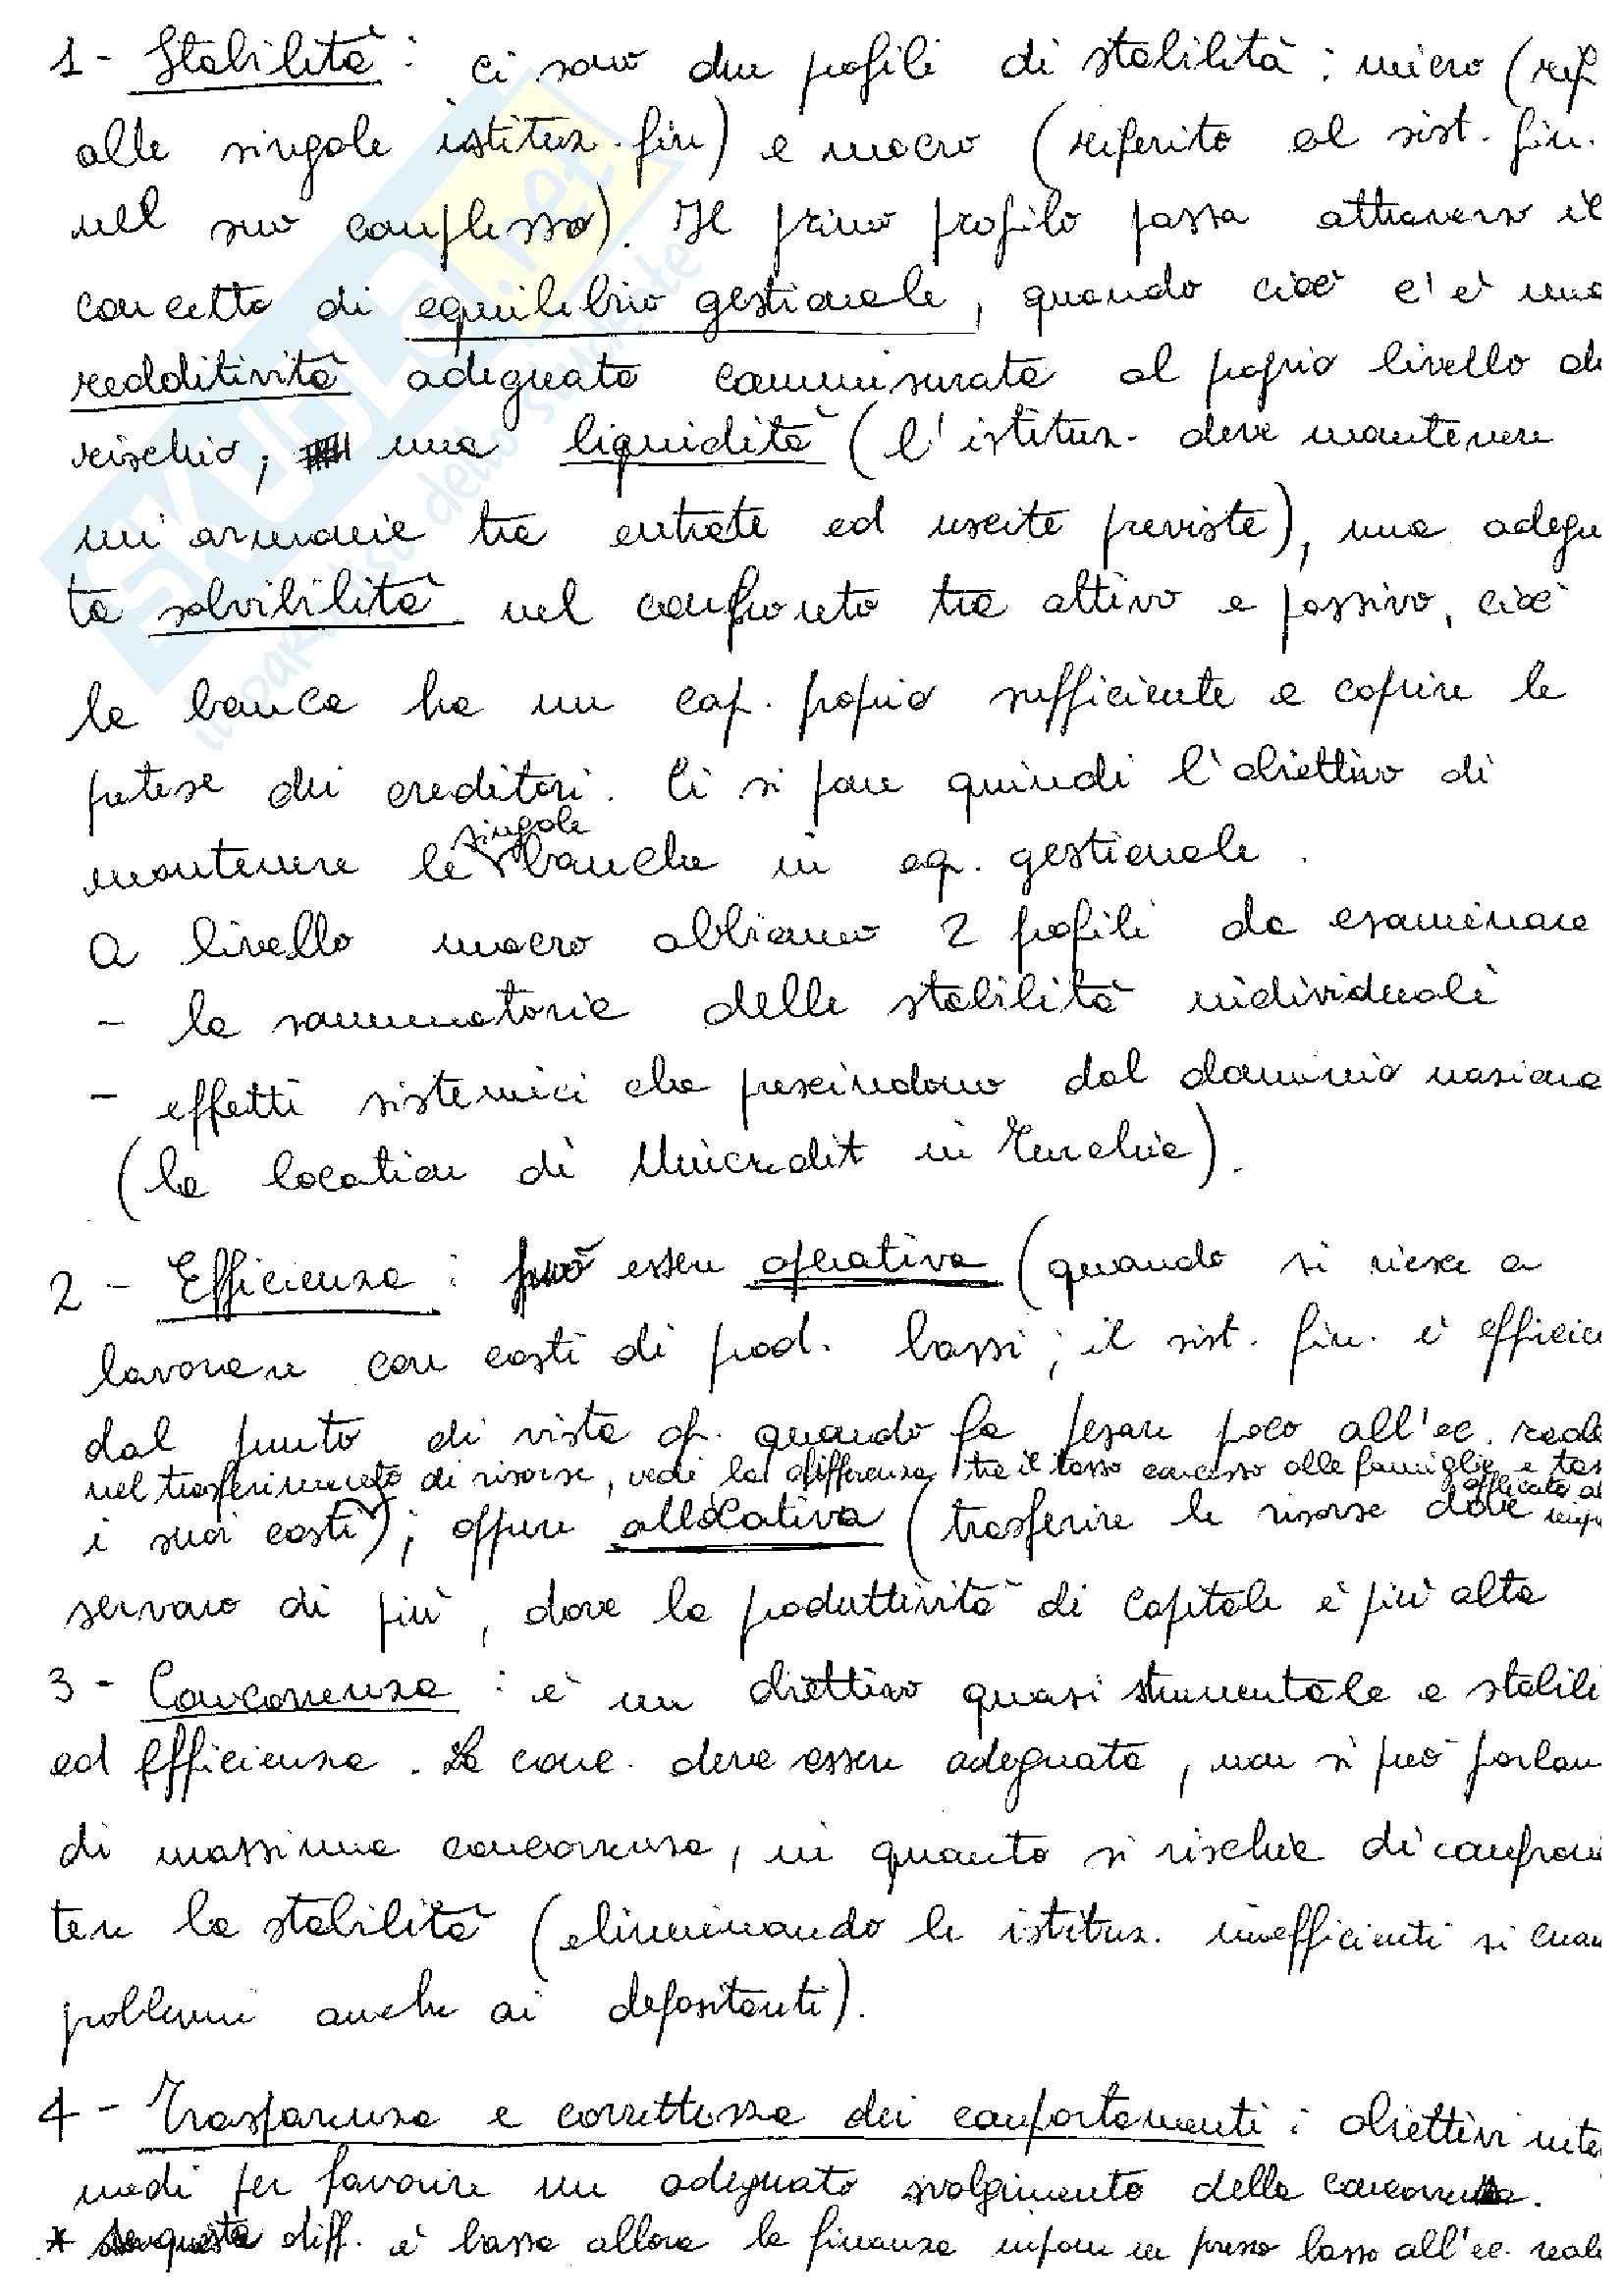 1 - Stabilità : ci sono due profili di stabilità : micro (rif
alle singole istituz. fin) e macro (riferito al sist. fin.
nel suo complesso). Il primo profilo passa attraverso il
concetto di equilibrio gestionale, quando cioè c'è una
redditività adeguata commisurata al proprio livello di
rischio; una liquidità (l'istituz. deve mantenere
un'armonia tra entrate ed uscite previste), una adegua
ta solvibilità nel confronto tra attivo e passivo, cioè
la banca ha un cap. proprio sufficiente a coprire le
pretese dei creditori. Ci si pone quindi l'obiettivo di
mantenere le singole banche in eq. gestionale.
A livello macro abbiamo 2 profili da esaminare
- la sommatoria delle stabilità individuali
- effetti sistemici che prescindono dal dominio naziona
(la location di Unicredit in Turchia).
2 - Efficienza : può essere operativa (quando si riesce a
lavorare con costi di prod. bassi; il sist. fin. è efficie
dal punto di vista op. quando fa pesare poco all'ec. reale
nel trasferimento di risorse, vedi la differenza tra il tasso concesso alle famiglie e tas
applicato al
i suoi costi*); oppure allocativa (trasferire le risorse dove imp
servano di più, dove la produttività di capitale è più alta
3 - Concorrenza : è un obiettivo quasi strumentale a stabili
ed efficienza. La conc. deve essere adeguata, non si può parlare
di massima concorrenza, in quanto si rischia di comprome
tere la stabilità (eliminando le istituz. inefficienti si crean
problemi anche ai depositanti).
4 - Trasparenza e correttezza dei comportamenti : obiettivi inter
medi per favorire un adeguato svolgimento della concorrenza.
* Se questa diff. è bassa allora la finanza impone un prezzo basso all'ec. reale
SKUOLA.net
il paradiso dello studente